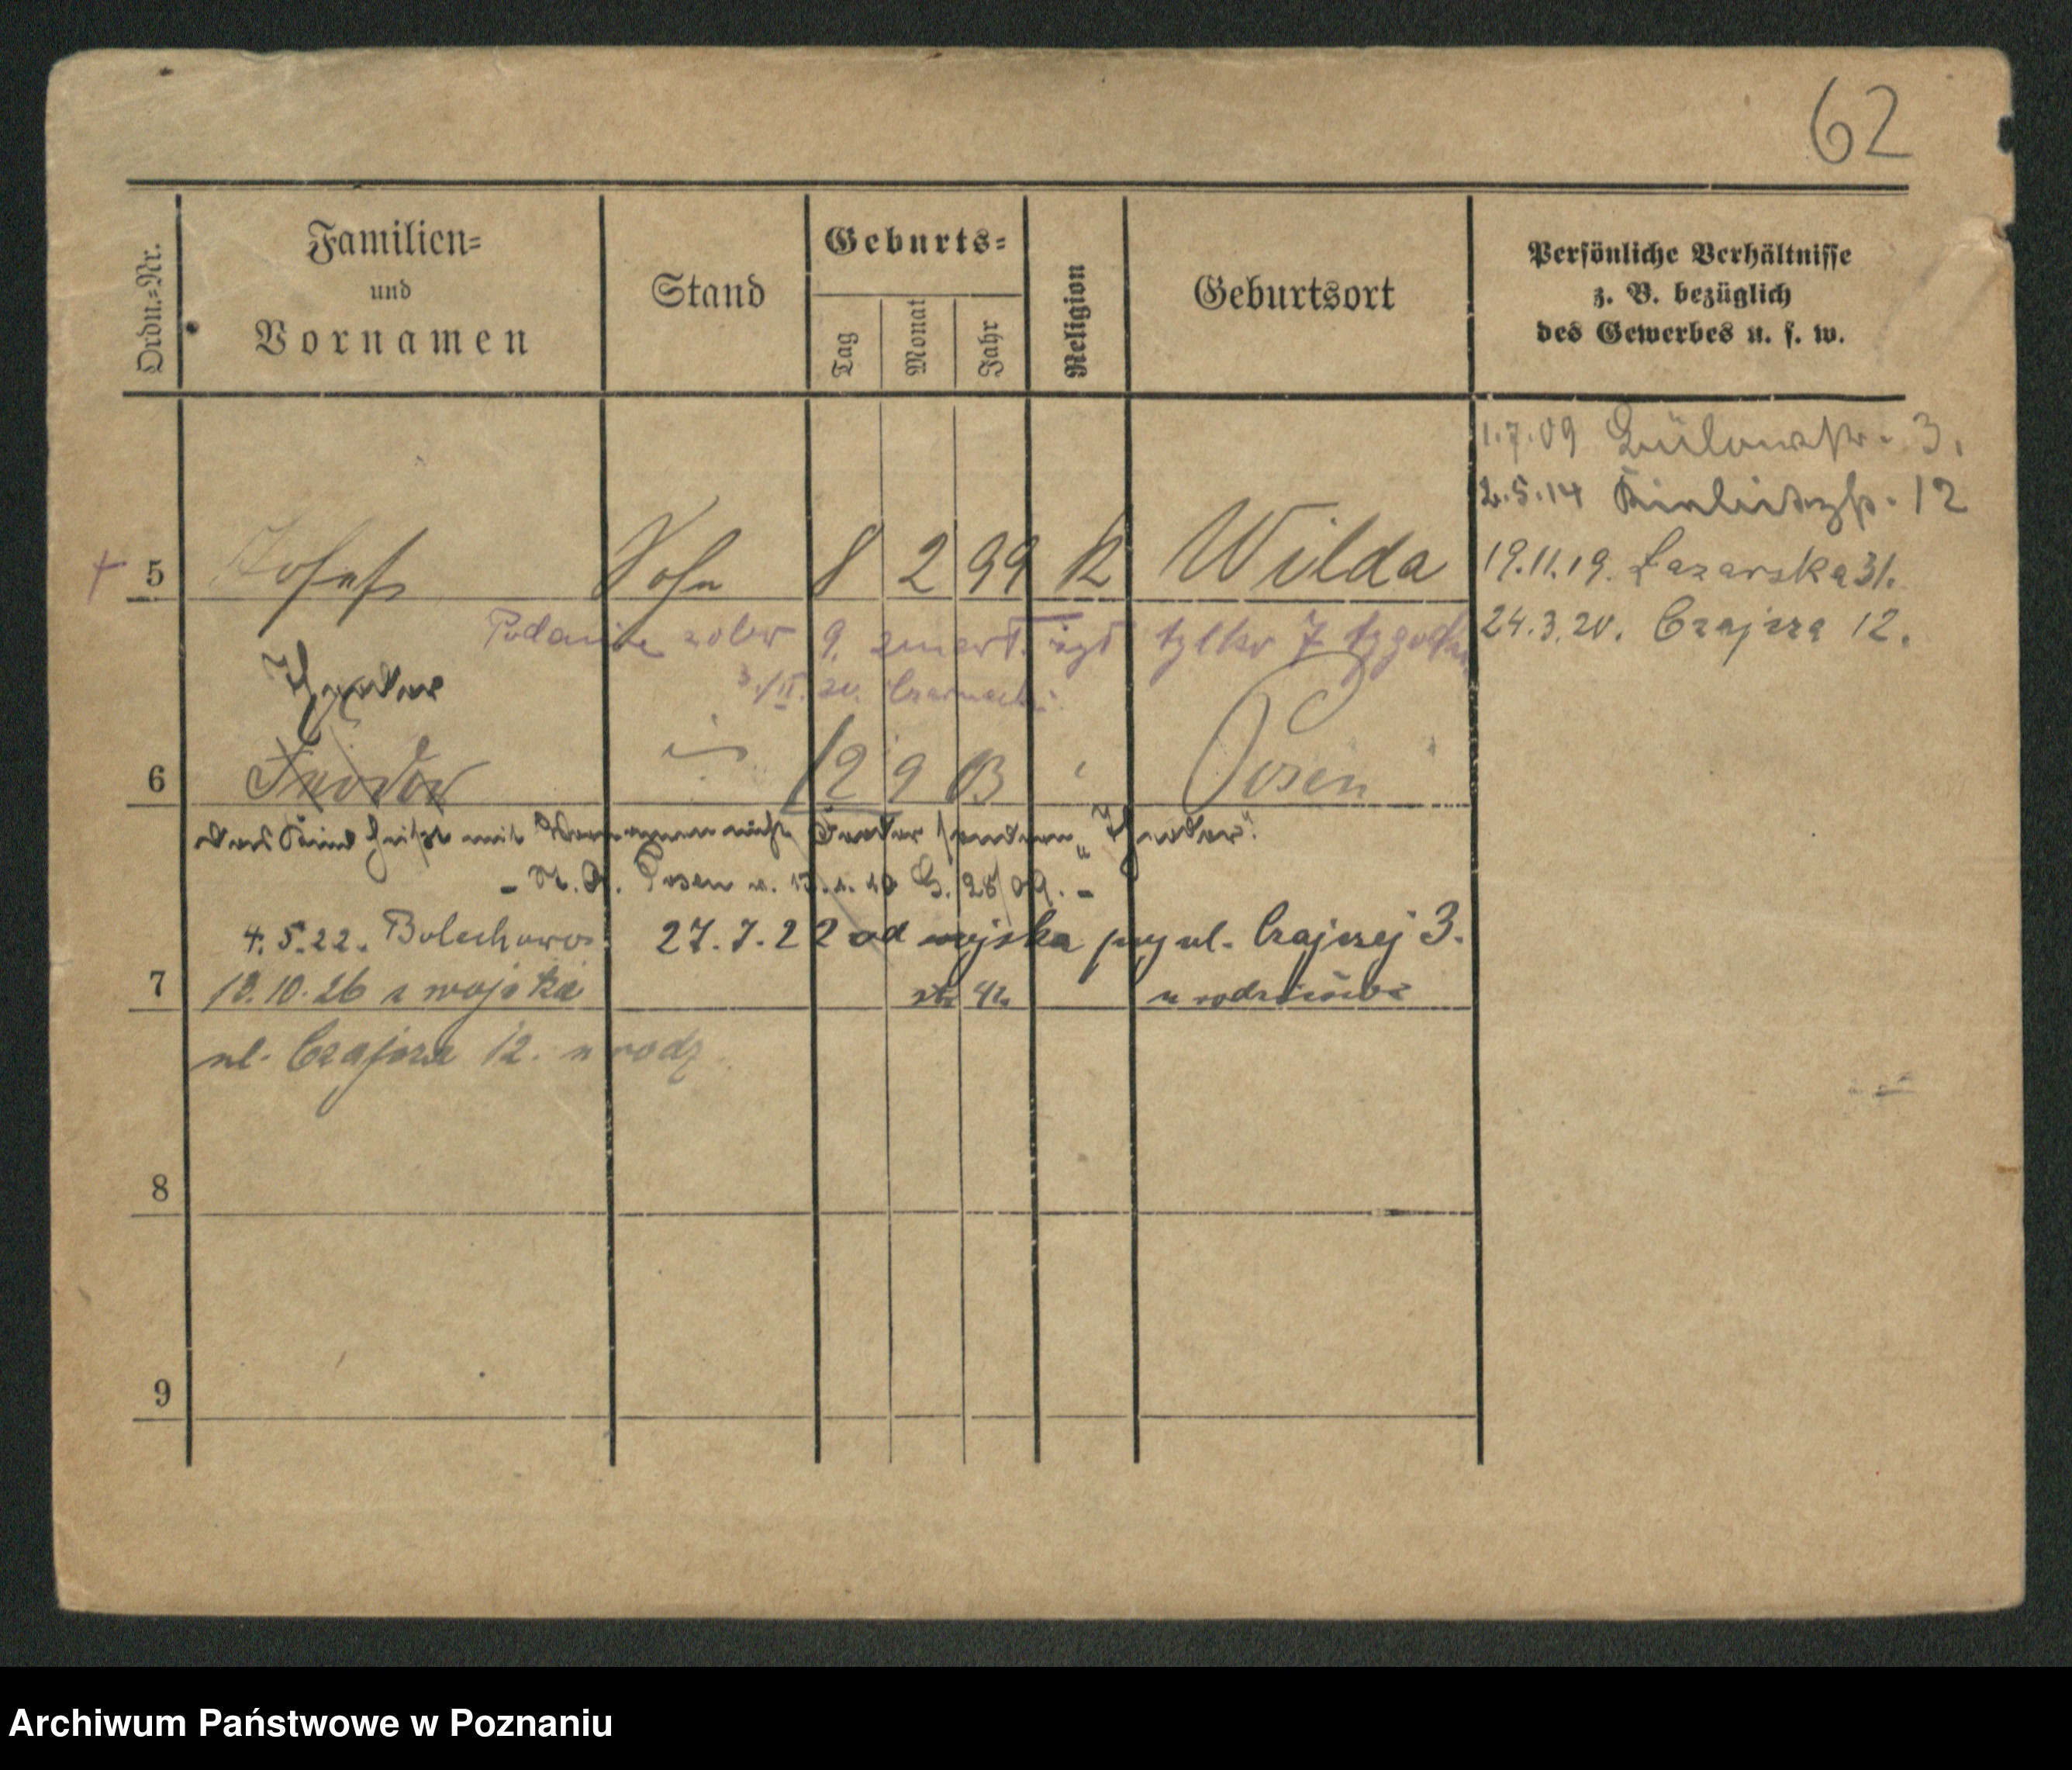 62
Ordn.=Nr.
Familien=
und
Vornamen
Stand
Geburts=
Tag
Monat
Jahr
Religion
Geburtsort
Persönliche Verhältnisse
z. B. bezüglich
des Gewerbes u. s. w.
1.7.09 Bülowstr. 3.
2.5.14 12
19.11.19. Łazarska 31.
24.3.20. Czajcza 12.
† 5 Josef Sohn 8 2 99 K Wilda
Podanie zmarł żył tylko 7 tygodn.
Theodor
6 Teodor " 12 9 03 " Posen
das Kind heißt mit Vornamen nicht Teodor sondern „Theodor“.
Posen G. 28/09. -
4.5.22. Bolechowo 27.7.22 od wojska przy ul. Czajczej 3.
7 12.10.26 z wojska u rodziców
ul. Czajcza 12. u rodz
8
9
Archiwum Państwowe w Poznaniu